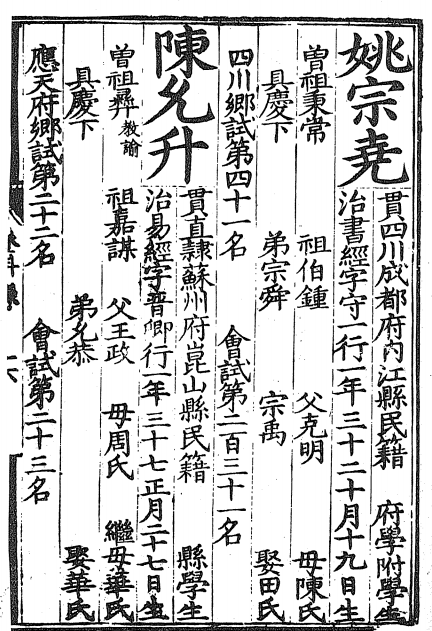 姚宗堯
貫四川成都府內江縣民籍 府學附學生
治書經字守一行一年三十二十月十九日生
曾祖秉常 祖伯鍾 父克明 母陳氏
具慶下 弟宗舜 宗禹 娶田氏
四川鄉試第四十一名 會試第二百三十一名
陳允升
貫直隸蘇州府崑山縣民籍 縣學生
治易經字晉卿行一年三十七正月二十七日生
曾祖彞教諭 祖嘉謀 父王政 母周氏 繼母華氏
具慶下 弟允恭 娶華氏
應天府鄉試第二十二名 會試第二十三名